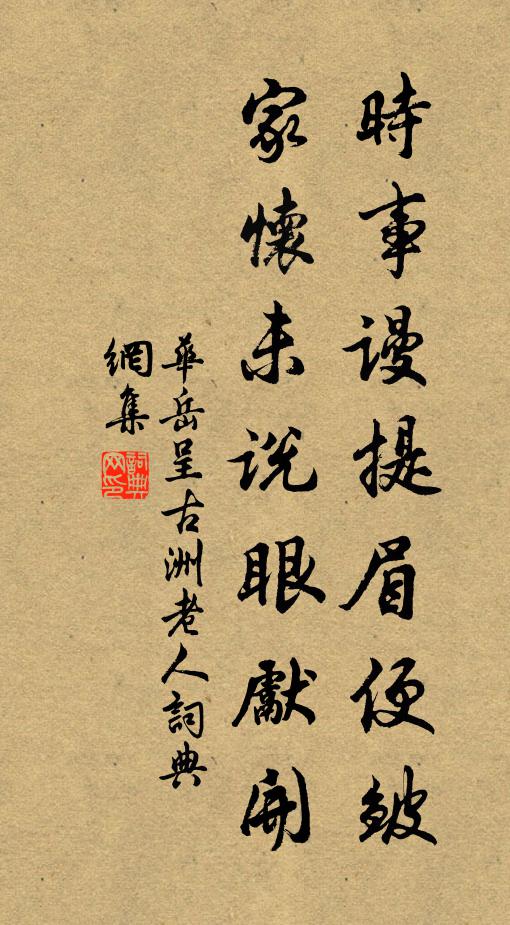 時事謾提眉便皴
家懷未説眼獻開
華岳呈古洲老人詞典
網集
詞典
网印